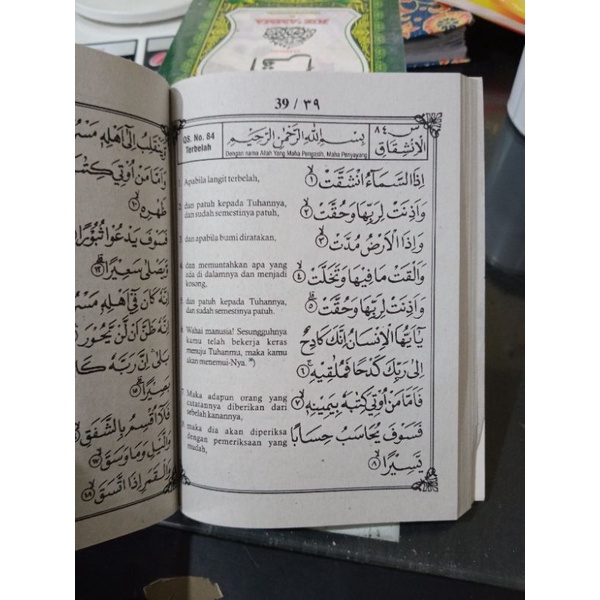 39 / ٣٩
QS. No. 84
Terbelah
بِسْمِ اللهِ الرَّحْمٰنِ الرَّحِيْمِ
Dengan nama Allah Yang Maha Pengasih, Maha Penyayang
س ٨٤
الْاِنْشِقَاقِ
1. Apabila langit terbelah,
اِذَا السَّمَاۤءُ انْشَقَّتْۙ ١
2. dan patuh kepada Tuhannya,
dan sudah semestinya patuh,
وَاَذِنَتْ لِرَبِّهَا وَحُقَّتْۙ ٢
3. dan apabila bumi diratakan,
وَاِذَا الْاَرْضُ مُدَّتْۙ ٣
4. dan memuntahkan apa yang
ada di dalamnya dan menjadi
kosong,
وَاَلْقَتْ مَا فِيْهَا وَتَخَلَّتْۙ ٤
5. dan patuh kepada Tuhannya,
dan sudah semestinya patuh.
وَاَذِنَتْ لِرَبِّهَا وَحُقَّتْۗ ٥
6. Wahai manusia! Sesungguhnya
kamu telah bekerja keras
menuju Tuhanmu, maka kamu
akan menemui-Nya.
يٰٓاَيُّهَا الْاِنْسَانُ اِنَّكَ كَادِحٌ
اِلٰى رَبِّكَ كَدْحًا فَمُلٰقِيْهِۚ ٦
7. Maka adapun orang yang
catatannya diberikan dari
sebelah kanannya,
فَاَمَّا مَنْ اُوْتِيَ كِتٰبَهٗ بِيَمِيْنِهٖۙ ٧
8. maka dia akan diperiksa
dengan pemeriksaan yang
mudah,
فَسَوْفَ يُحَاسَبُ حِسَابًا
يَّسِيْرًاۙ ٨
وَيَنْقَلِبُ اِلٰٓى اَهْلِهٖ
وَاَمَّا مَنْ اُوْتِيَ كِتٰبَهٗ
ظَهْرِهٖۙ ١٠
فَسَوْفَ يَدْعُوْا ثُبُوْرًاۙ
وَّيَصْلٰى سَعِيْرًاۗ ١٢
اِنَّهٗ كَانَ فِيْٓ اَهْلِهٖ
اِنَّهٗ ظَنَّ اَنْ لَّنْ يَّحُوْرَۛ
بَلٰىۛ اِنَّ رَبَّهٗ
بَصِيْرًاۗ ١٥
فَلَآ اُقْسِمُ بِالشَّفَقِۙ
وَالَّيْلِ وَمَا وَسَقَۙ ١٧
وَالْقَمَرِ اِذَا اتَّسَقَۙ ١٨